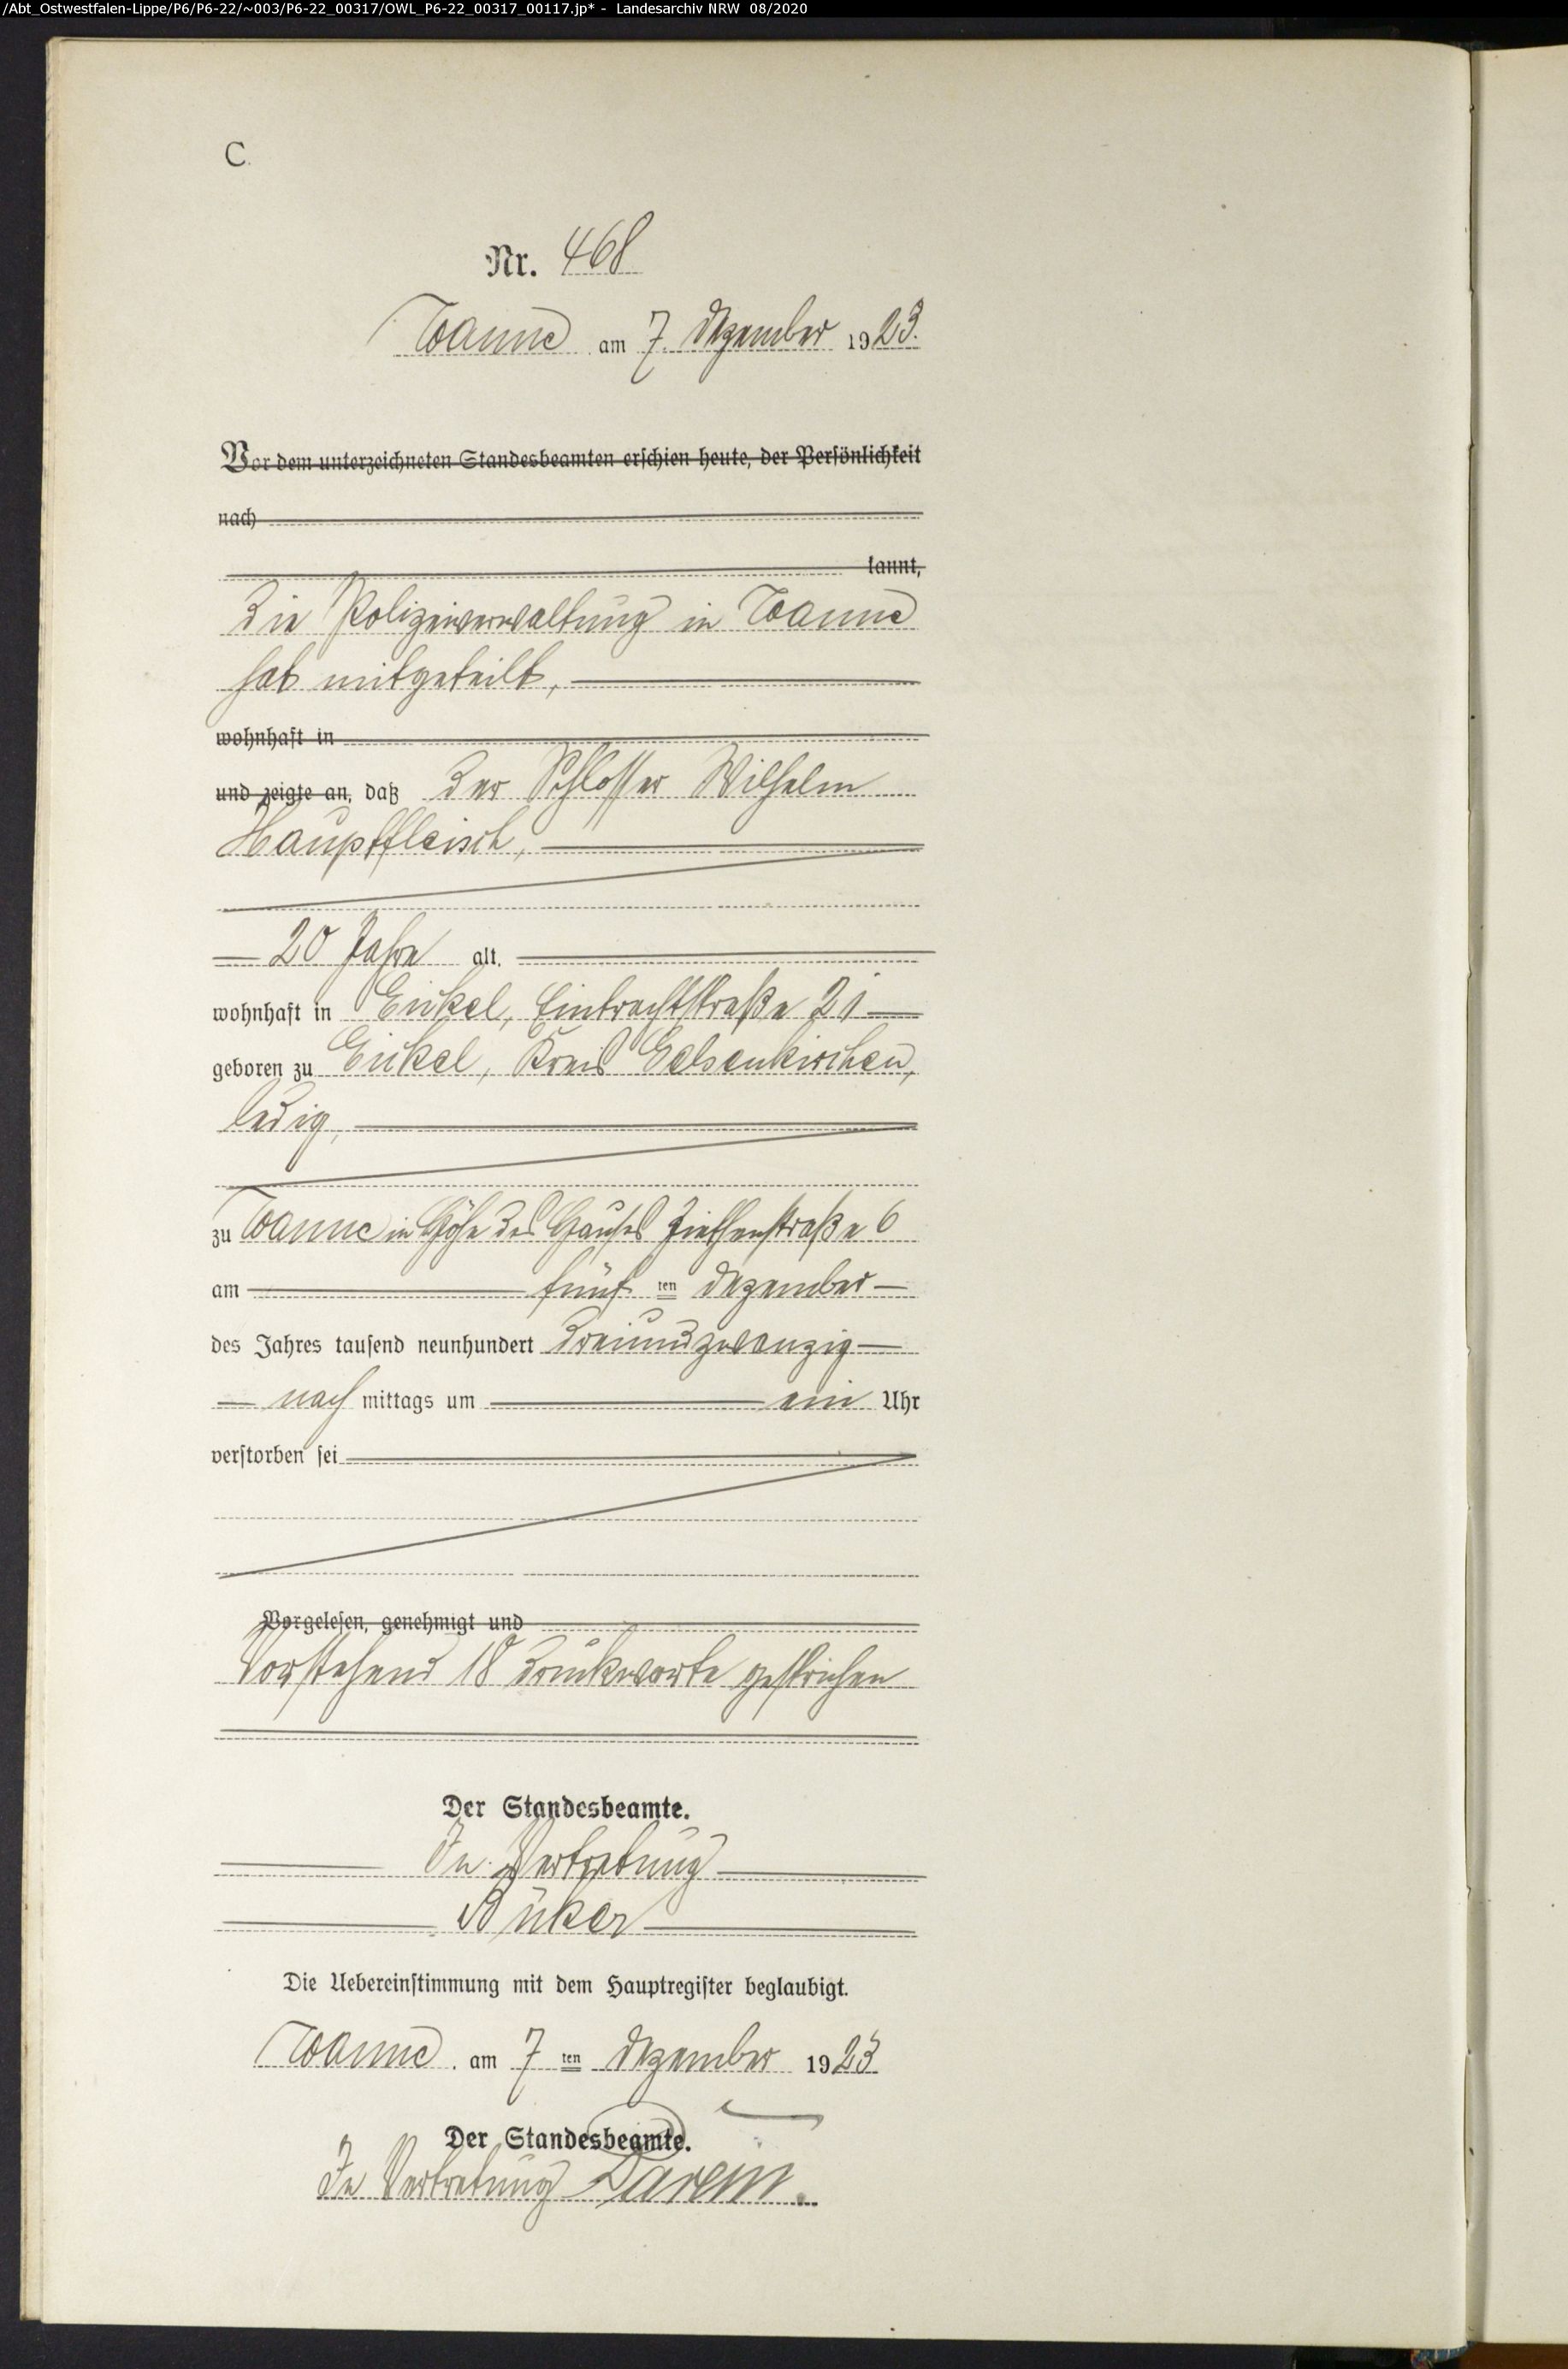 /Abt_Ostwestfalen-Lippe/P6/P6-22/~003/P6-22_00317/OWL_P6-22_00317_00117.jp* - Landesarchiv NRW 08/2020
C.
Nr. 468
Wanne am 7. Dezember 1923.
Vor dem unterzeichneten Standesbeamten erschien heute, der Persönlichkeit
nach
kannt,
Die Polizeiverwaltung in Wanne
hat mitgeteilt,
wohnhaft in
und zeigte an, daß der Schlosser Wilhelm
Hauptfleisch,
20 Jahre alt,
wohnhaft in Eickel, Eintrachtstraße 21
geboren zu Eickel, Kreis Gelsenkirchen,
ledig,
zu Wanne in Höhe des Hauses Ziethenstraße 6
am fünf ten Dezember
des Jahres tausend neunhundert dreiundzwanzig
nach mittags um ein Uhr
verstorben sei
Vorgelesen, genehmigt und
Vorstehend 18 Druckworte gestrichen
Der Standesbeamte.
In Vertretung
Büker
Die Uebereinstimmung mit dem Hauptregister beglaubigt.
Wanne, am 7 ten Dezember 1923
Der Standesbeamte.
In Vertretung